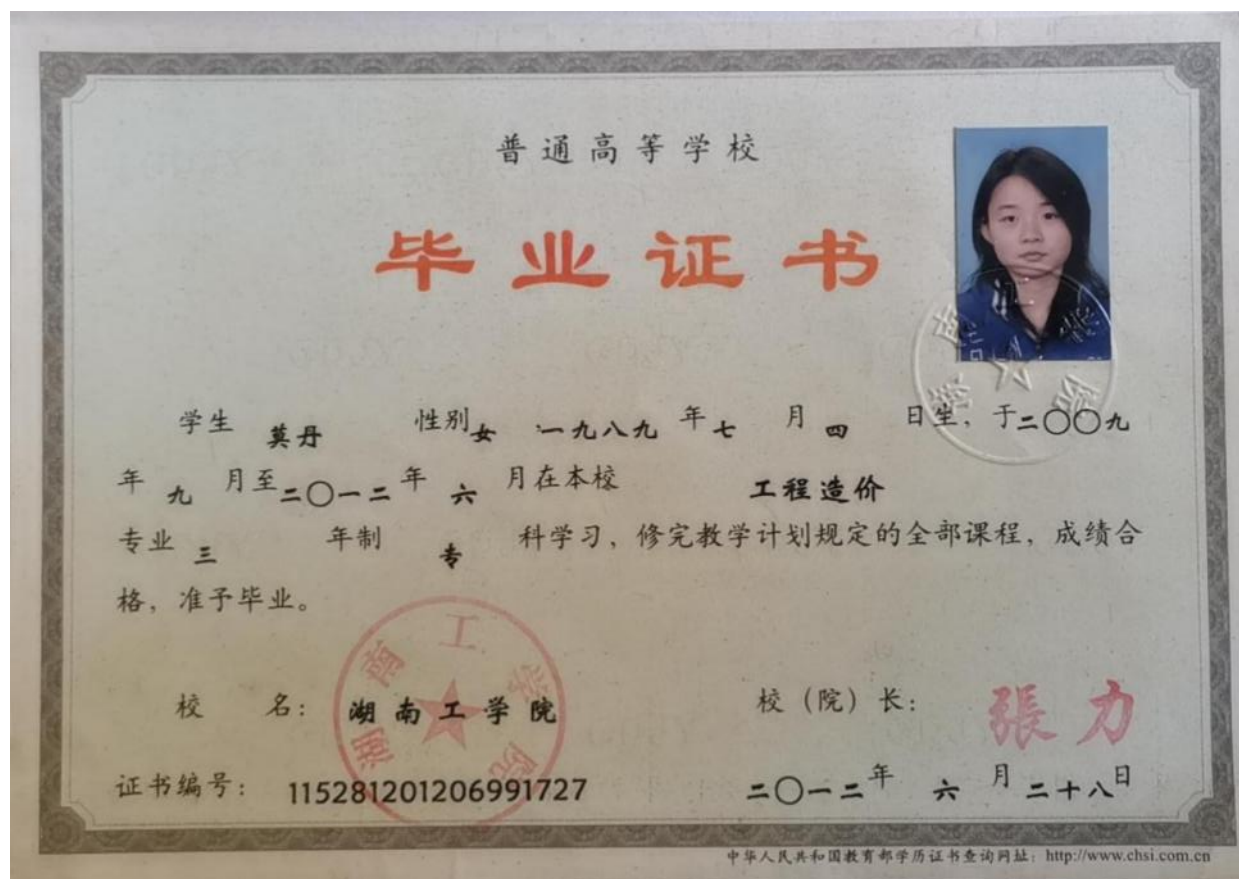 普通高等学校
毕业证书
学生 莫丹 性别女 一九八九 年七 月 四 日生，于二〇〇九
年 九 月至二〇一二年 六 月在本校 工程造价
专业 三 年制 专 科学习，修完教学计划规定的全部课程，成绩合
格，准予毕业。
湖南工学院
校 名：湖南工学院 校（院）长：張力
证书编号：115281201206991727 二〇一二年 六 月二十八日
中华人民共和国教育部学历证书查询网址：http://www.chsi.com.cn